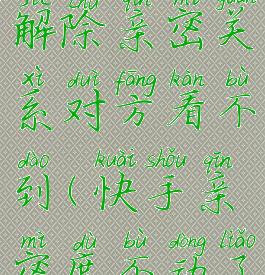 jiě chú qīn mì guān
解除亲密关
xì duì fāng kàn bù
系对方看不
dào kuài shǒu qīn
到(快手亲
mì dù bù dòng liǎo
密度不动了